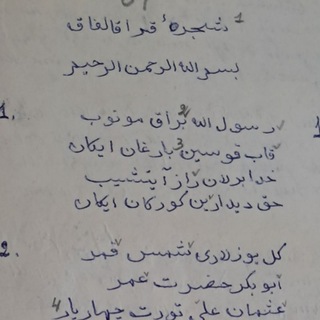 شجرهٔ قراقالفاق 1
بسم الله الرحمن الرحيم
1. رسول الله براق مونوب 2
قاب قوسين 3 بارغان ايكان
خدا برلان راز آيتشيب
حق ديدارين كوركان ايكان
2. كل يوزلاري شمس قمر
أبو بكر حضرت عمر
عثمان علي تورت چهاريار 4